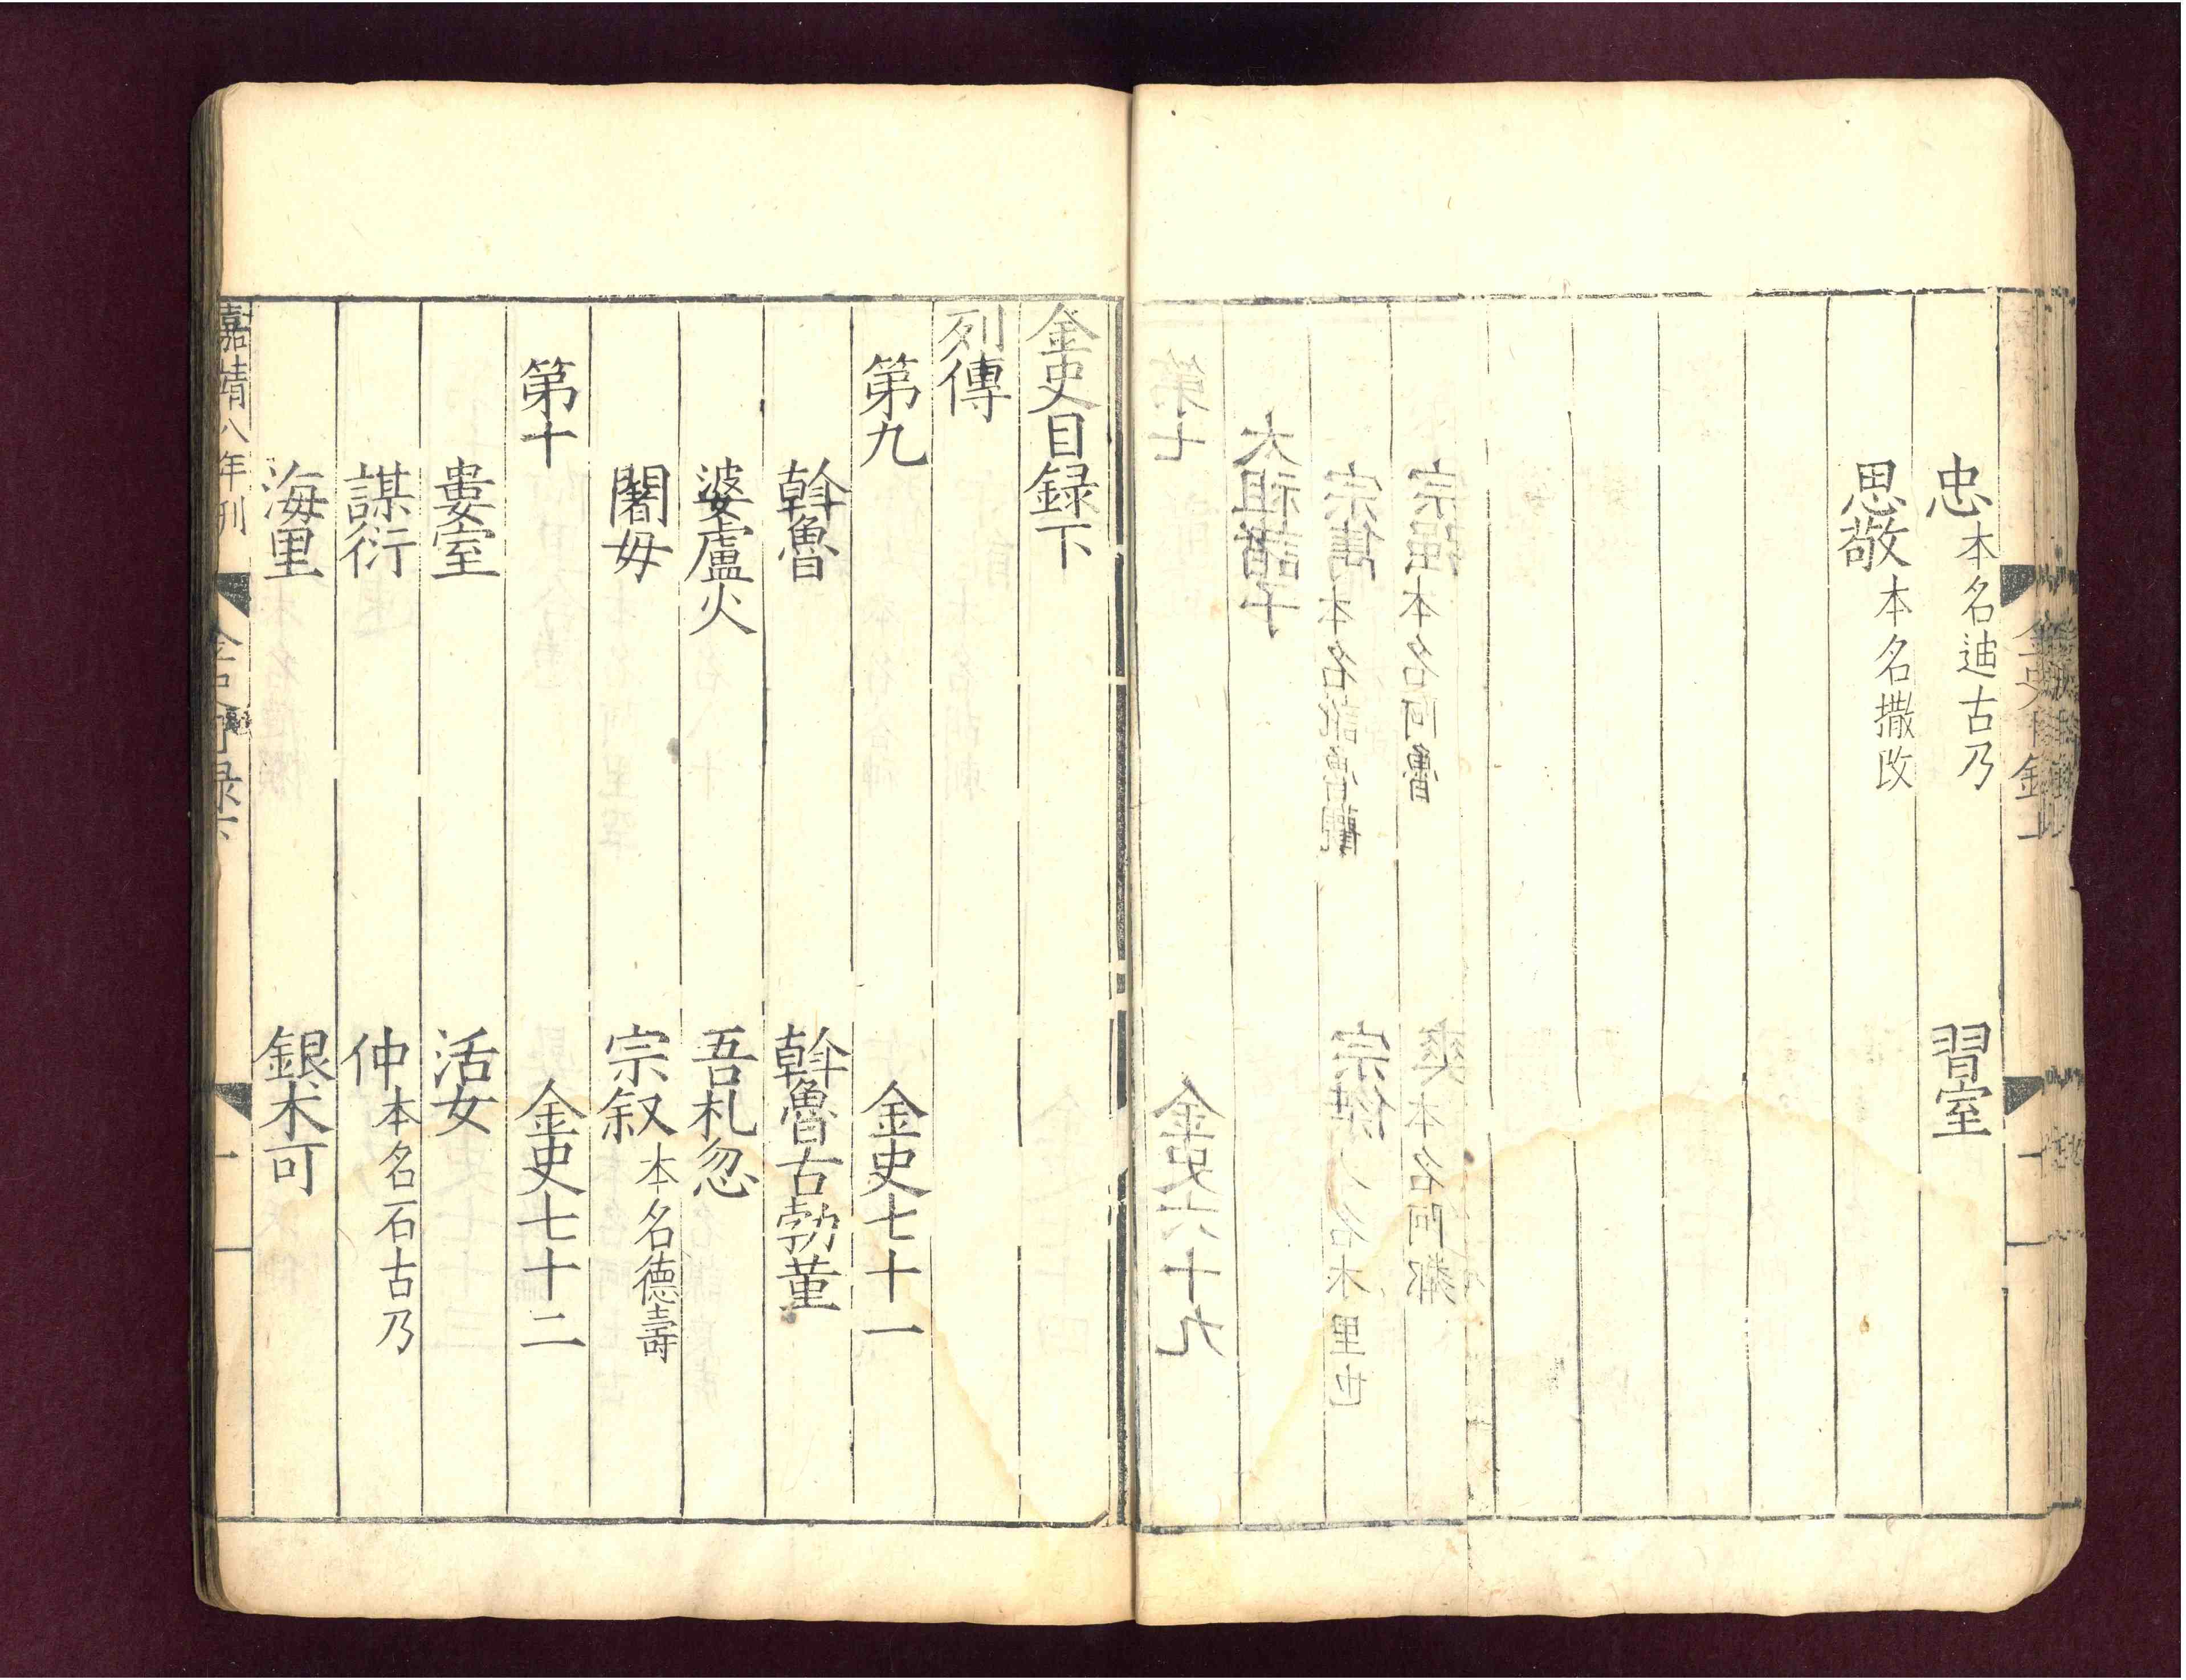 忠本名迪古乃 習室
思敬本名撒改
宗強本名阿魯 爽本名阿鄰
宗雋本名訛魯觀 宗傑本名木里也
太祖諸子
第七 金史六十九
金史目録下
列傳
第九 金史七十一
斡魯 斡魯古勃菫
婆盧火 吾札忽
闍毋 宗叙本名德壽
第十 金史七十二
婁室 活女
謀衍 仲本名石古乃
海里 銀术可
嘉靖八年刊 金史目録下 一